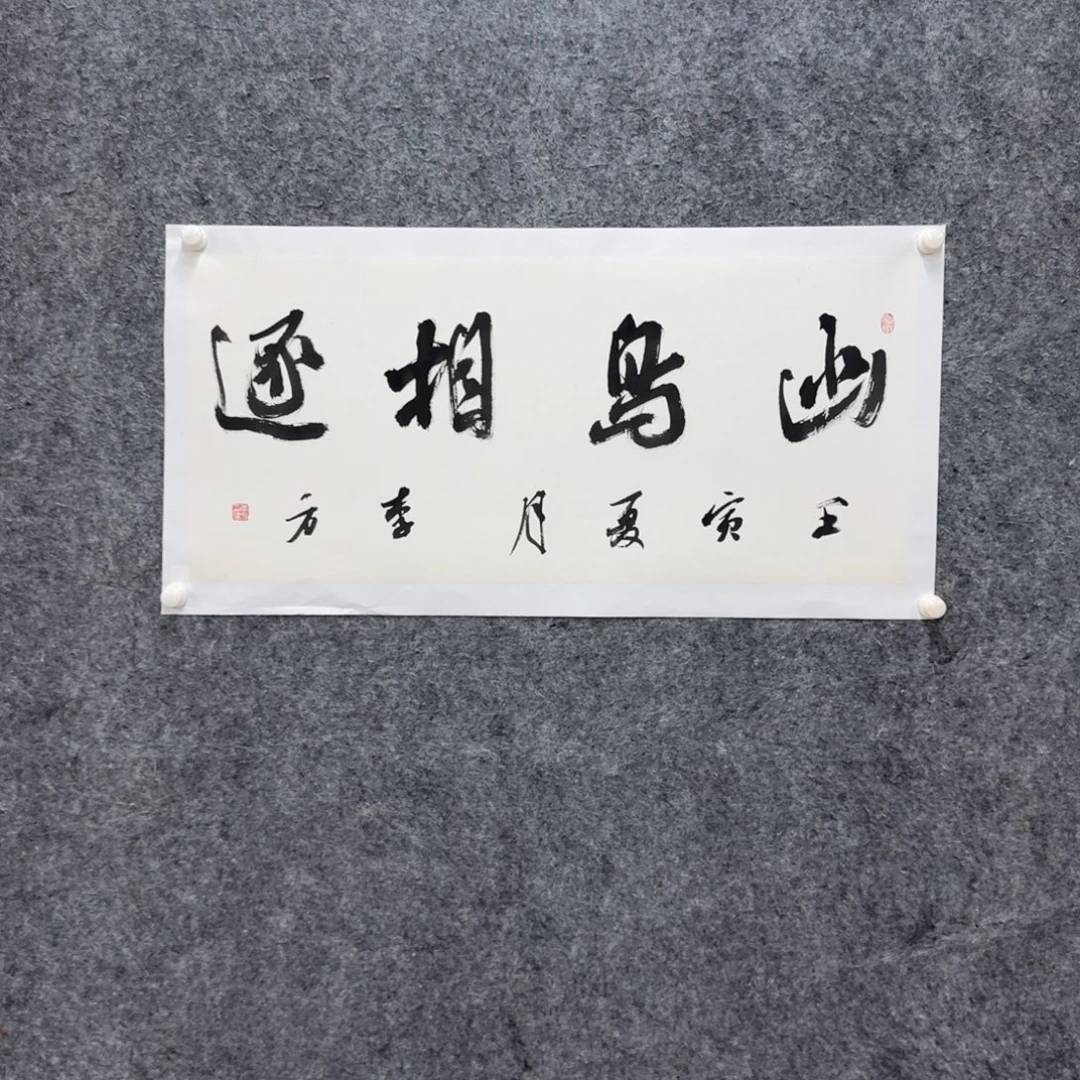 幽鸟相逐
壬寅夏月李方